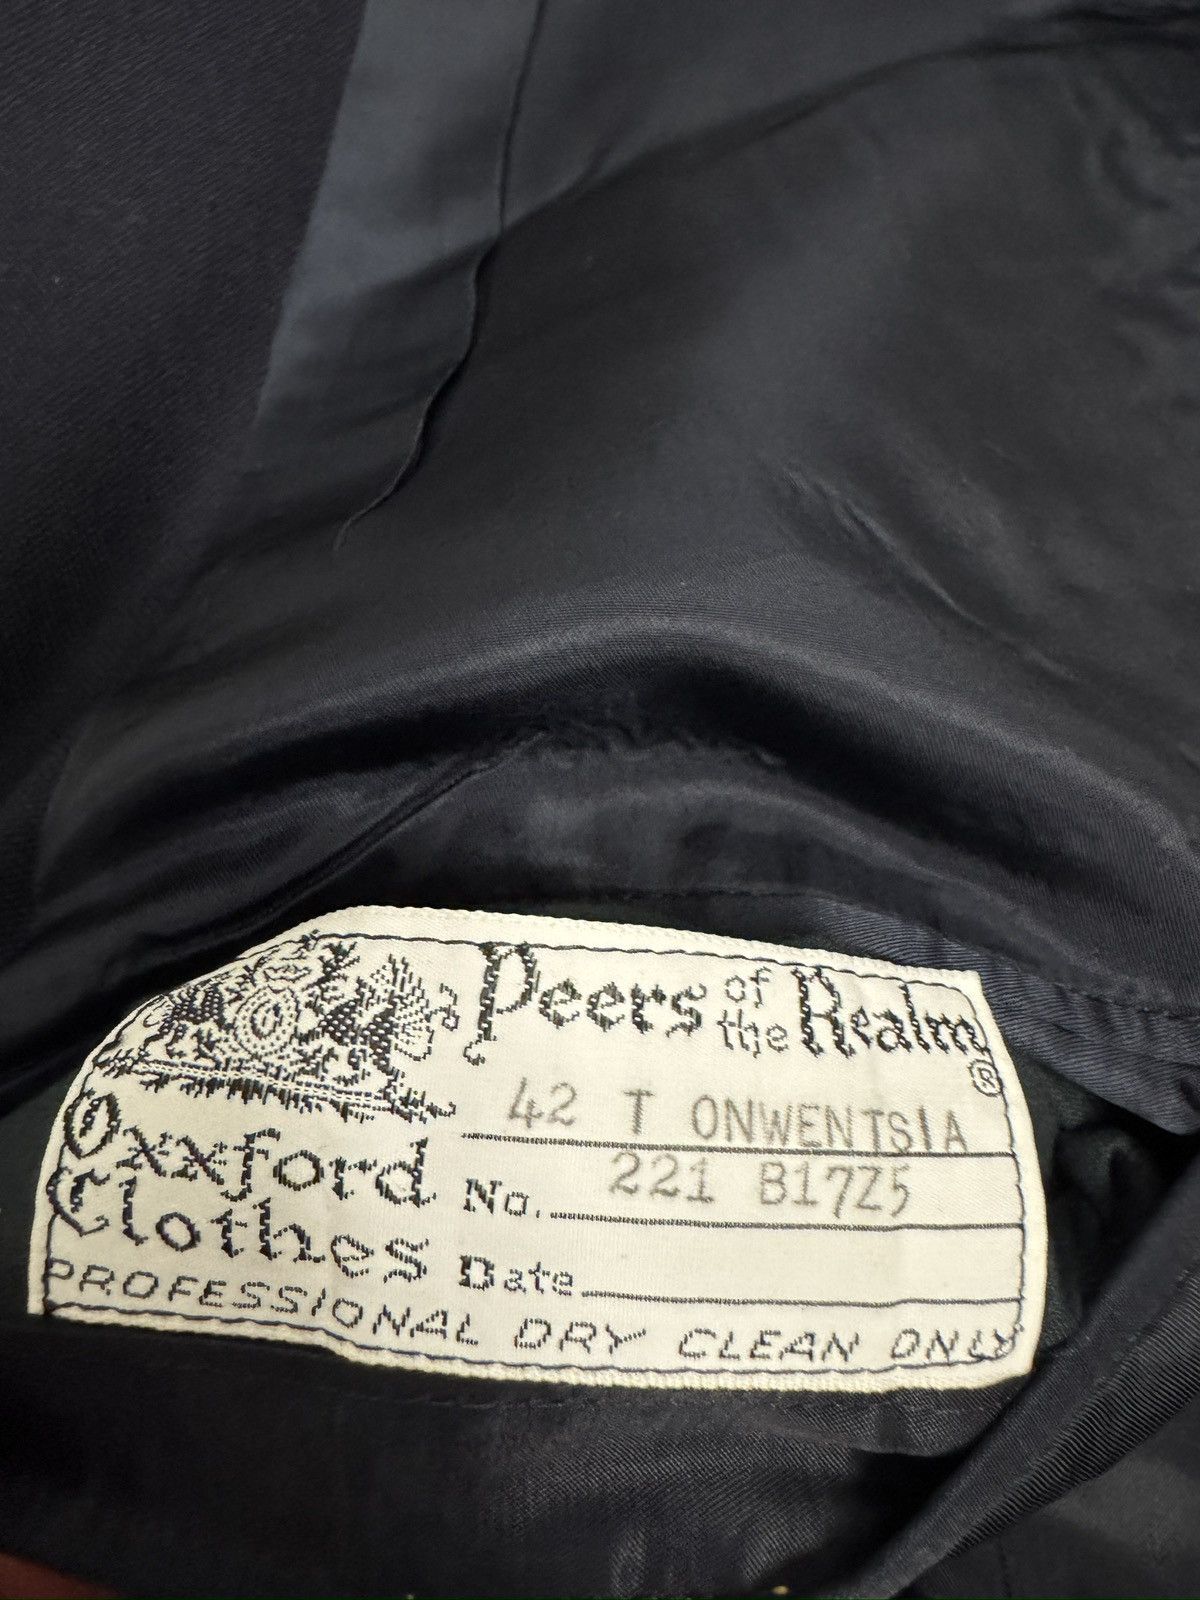 Peers of the Realm ®
42 T ONWENTSIA
Oxxford
Clothes
No. 221 B17Z5
Date
PROFESSIONAL DRY CLEAN ONLY